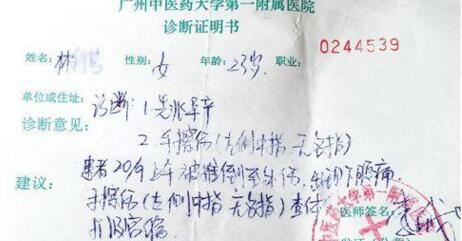 广州中医药大学第一附属医院
诊断证明书
0244539
姓名: 林 性别: 女 年龄: 23岁
单位或住址: 诊断: 1.先兆早产
诊断意见: 2.手擦伤(左侧中指 无名指)
患者 上午被推倒至外伤, 出现下腹痛
建议: 手擦伤(左侧中指 无名指) 查体
扪及宫缩
医师签名:
中医药大学第一附